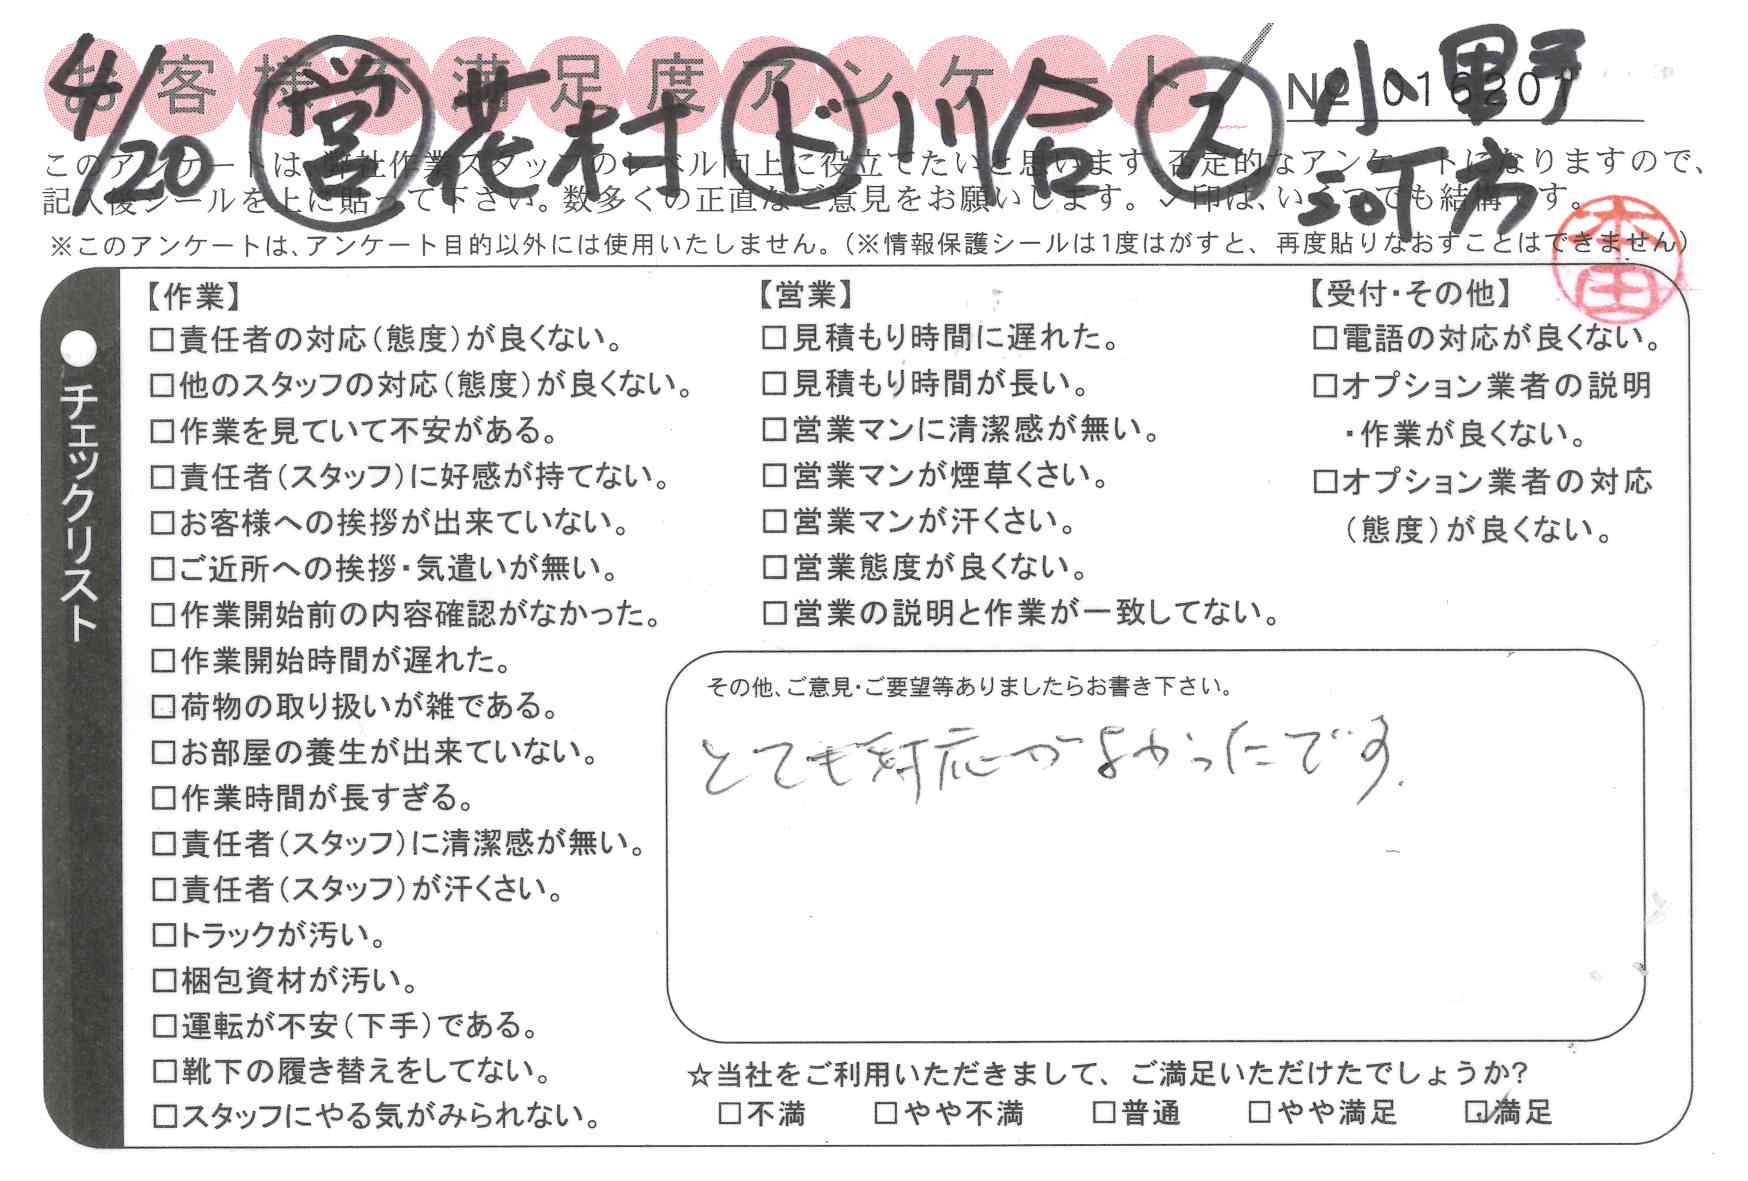 お客様不満足度アンケート
№ 016207
4/20 営 花村 ド 川合 ス 小野
河市
このアンケートは、弊社作業スタッフのレベル向上に役立てたいと思います。否定的なアンケートになりますので、
記入後シールを上に貼って下さい。数多くの正直なご意見をお願いします。✓印は、いくつでも結構です。
※このアンケートは、アンケート目的以外には使用いたしません。(※情報保護シールは1度はがすと、再度貼りなおすことはできません)
本田
●チェックリスト
【作業】
□責任者の対応(態度)が良くない。
□他のスタッフの対応(態度)が良くない。
□作業を見ていて不安がある。
□責任者(スタッフ)に好感が持てない。
□お客様への挨拶が出来ていない。
□ご近所への挨拶・気遣いが無い。
□作業開始前の内容確認がなかった。
□作業開始時間が遅れた。
□荷物の取り扱いが雑である。
□お部屋の養生が出来ていない。
□作業時間が長すぎる。
□責任者(スタッフ)に清潔感が無い。
□責任者(スタッフ)が汗くさい。
□トラックが汚い。
□梱包資材が汚い。
□運転が不安(下手)である。
□靴下の履き替えをしてない。
□スタッフにやる気がみられない。
【営業】
□見積もり時間に遅れた。
□見積もり時間が長い。
□営業マンに清潔感が無い。
□営業マンが煙草くさい。
□営業マンが汗くさい。
□営業態度が良くない。
□営業の説明と作業が一致してない。
【受付・その他】
□電話の対応が良くない。
□オプション業者の説明
・作業が良くない。
□オプション業者の対応
(態度)が良くない。
その他、ご意見・ご要望等ありましたらお書き下さい。
とても対応がよかったです.
☆当社をご利用いただきまして、ご満足いただけたでしょうか?
□不満 □やや不満 □普通 □やや満足 ☑満足